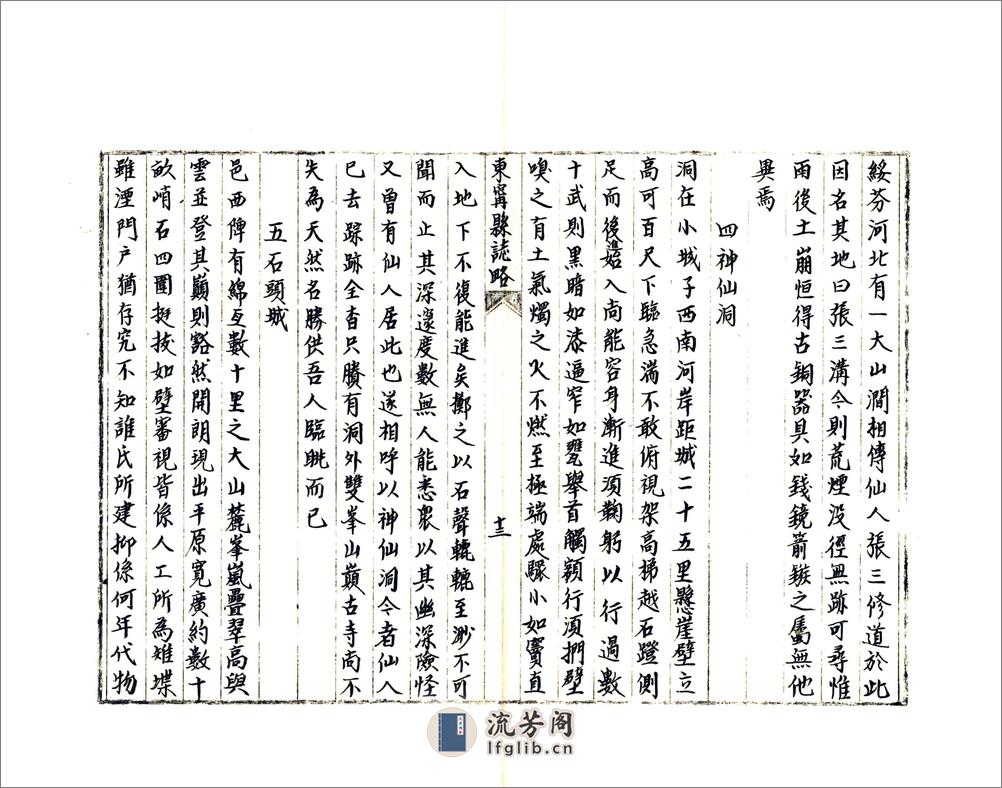 綏芬河北有一大山澗相傳仙人張三修道於此
因名其地曰張三溝今則荒煙没徑無跡可尋惟
雨後土崩恒得古銅器具如錢鏡箭鏃之屬無他
異焉
四神仙洞
洞在小城子西南河岸距城二十五里懸崖壁立
高可百尺下臨急湍不敢俯視架高梯越石蹬側
足而後進始入尚能容身漸進須鞠躬以行過數
十武則黑暗如漆逼窄如甕舉首觸額行須捫壁
嗅之有土氣燭之火不燃至極端處驟小如竇直
東寧縣誌略
十三
入地下不復能進矣擲之以石聲轆轆至渺不可
聞而止其深邃度數無人能悉衆以其幽深險怪
又曾有仙人居此也遂相呼以神仙洞今者仙人
已去踪跡全杳只賸有洞外雙峯山巔古寺尚不
失為天然名勝供吾人臨眺而已
五石頭城
邑西陴有綿亙數十里之大山麓峯嵐疊翠高與
雲並登其巔則豁然開朗現出平原寬廣約數十
畝峭石四圍挺拔如壁審視皆係人工所為雉堞
雖湮門户猶存究不知誰氏所建抑係何年代物
流芳阁
lfglib.cn